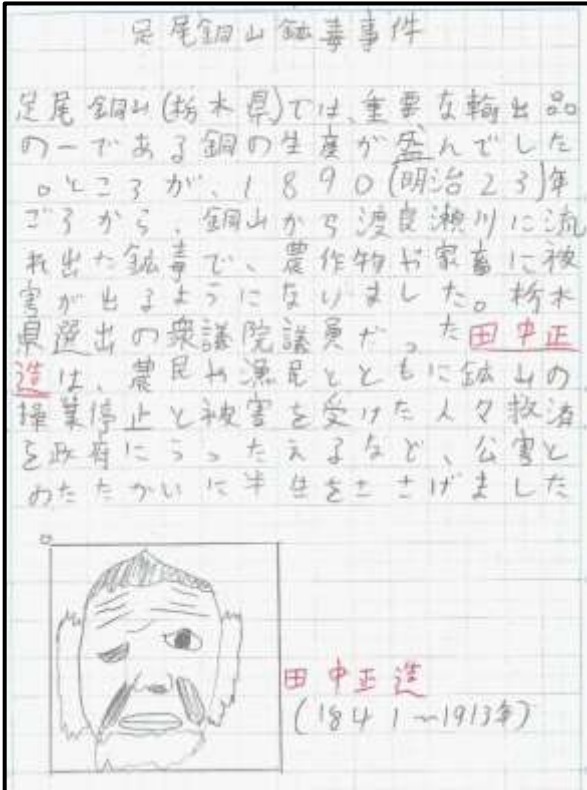 足尾銅山鉱毒事件
足尾銅山(栃木県)では、重要な輸出品
の一である銅の生産が盛んでした
。ところが、1890(明治23)年
ごろから、銅山から渡良瀬川に流
れ出た鉱毒で、農作物や家畜に被
害が出るようになりました。栃木
県選出の衆議院議員だった田中正
造は、農民や漁民とともに鉱山の
操業停止と被害を受けた人々救済
を政府にうったえるなど、公害と
のたたかいに半生をささげました
。
田中正造
(1841~1913年)